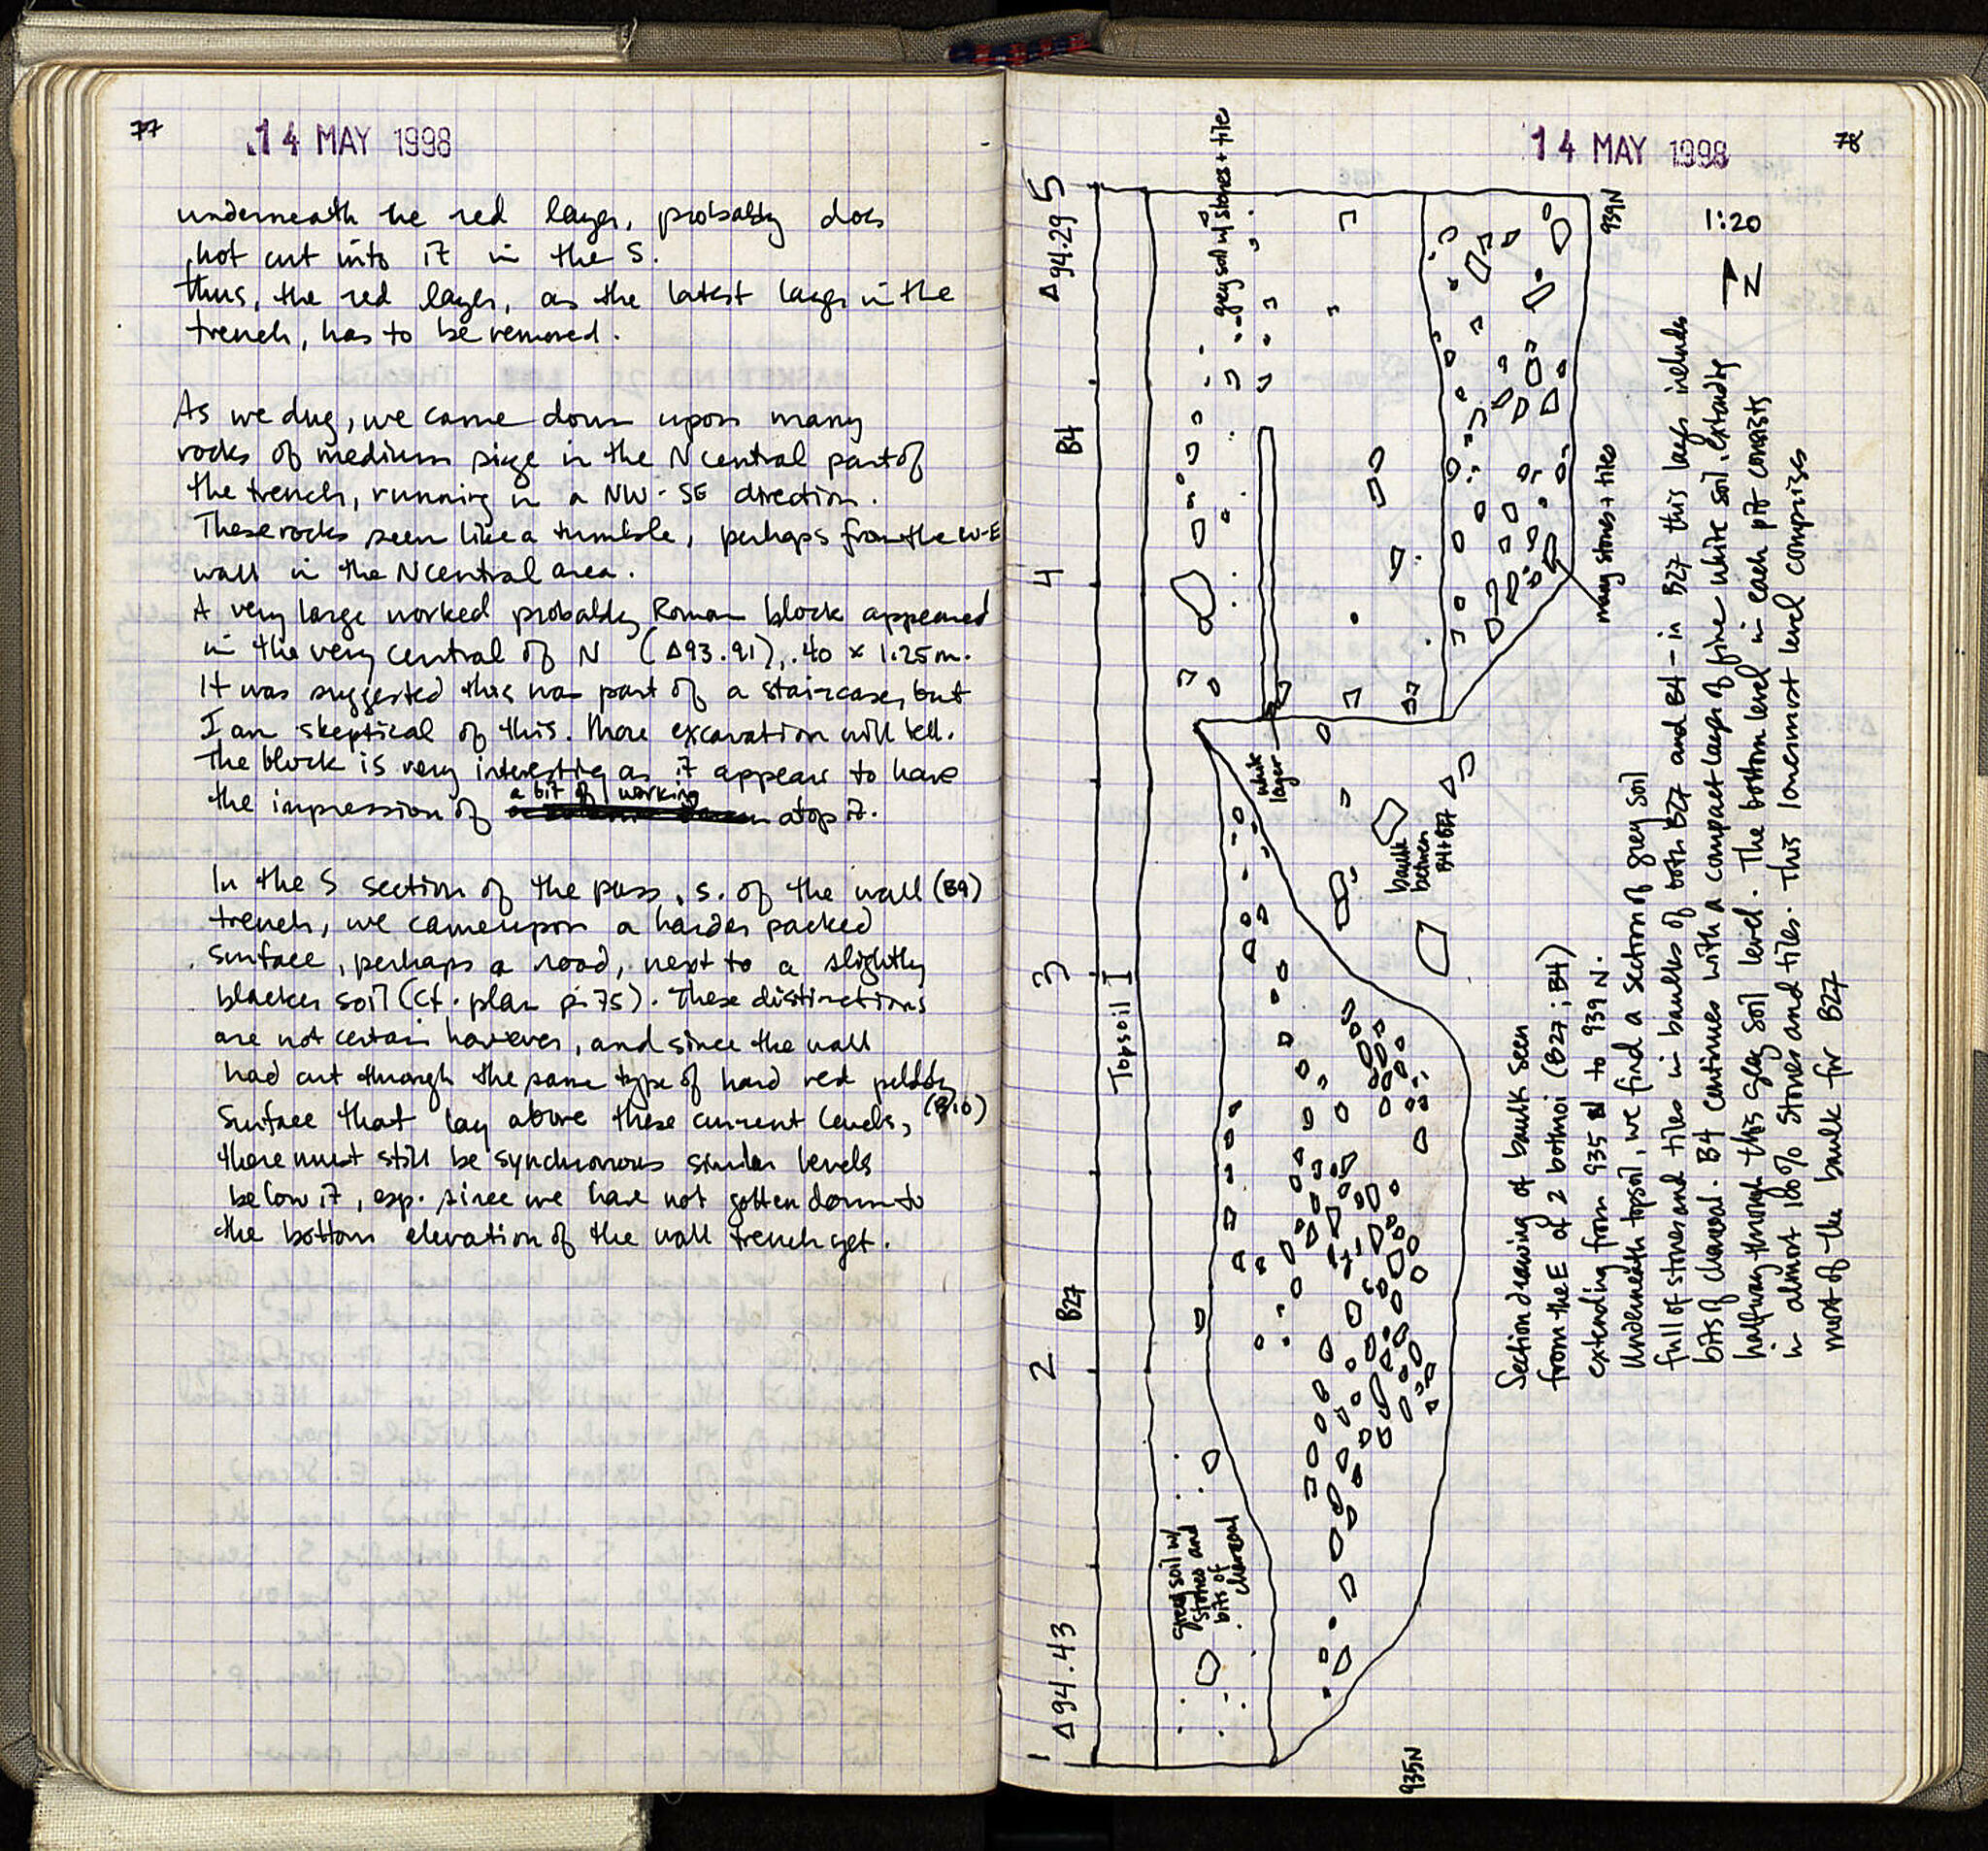 77
14 MAY 1998
underneath the red layer, probably does
not cut into it in the S.
thus, the red layer, as the latest layer in the
trench, has to be removed.
As we dug, we came down upon many
rocks of medium size in the N central part of
the trench, running in a NW-SE direction.
These rocks seem like a tumble, perhaps from the W-E
wall in the N central area.
A very large worked probably Roman block appeared
in the very central of N (Δ93.91), .40 x 1.25m.
It was suggested this was part of a staircase, but
I am skeptical of this. More excavation will tell.
The block is very interesting as it appears to have
the impression of a bit of working atop it.
In the S section of the pass, s. of the wall (B9)
trench, we came upon a harder packed
surface, perhaps a road, next to a slightly
blacker soil (cf. plan p. 75). These distinctions
are not certain however, and since the wall
had cut through the same type of hard red pebbly
surface that lay above these current levels, (B10)
there must still be synchronous similar levels
below it, esp. since we have not gotten down to
the bottom elevation of the wall trench yet.
14 MAY 1998
78
1:20
N
5
Δ94.29
B4
4
3
B27
2
Δ94.43
1
Topsoil I
grey soil w/ stones + tile
939N
many stones + tiles
white
layer
baulk
between
B4+B27
grey soil w/
stones and
bits of
charcoal
935N
Section drawing of baulk seen
from the E of 2 bothroi (B27; B4)
extending from 935 to 939 N.
Underneath topsoil, we find a section of grey soil
full of stones and tiles in baulks of both B27 and B4 - in B27 this layer includes
bits of charcoal. B4 continues with a compact layer of fine white soil, extending
halfway through this grey soil level. The bottom level in each pit consists
in almost 100% stones and tiles. This lowermost level comprises
most of the baulk for B27